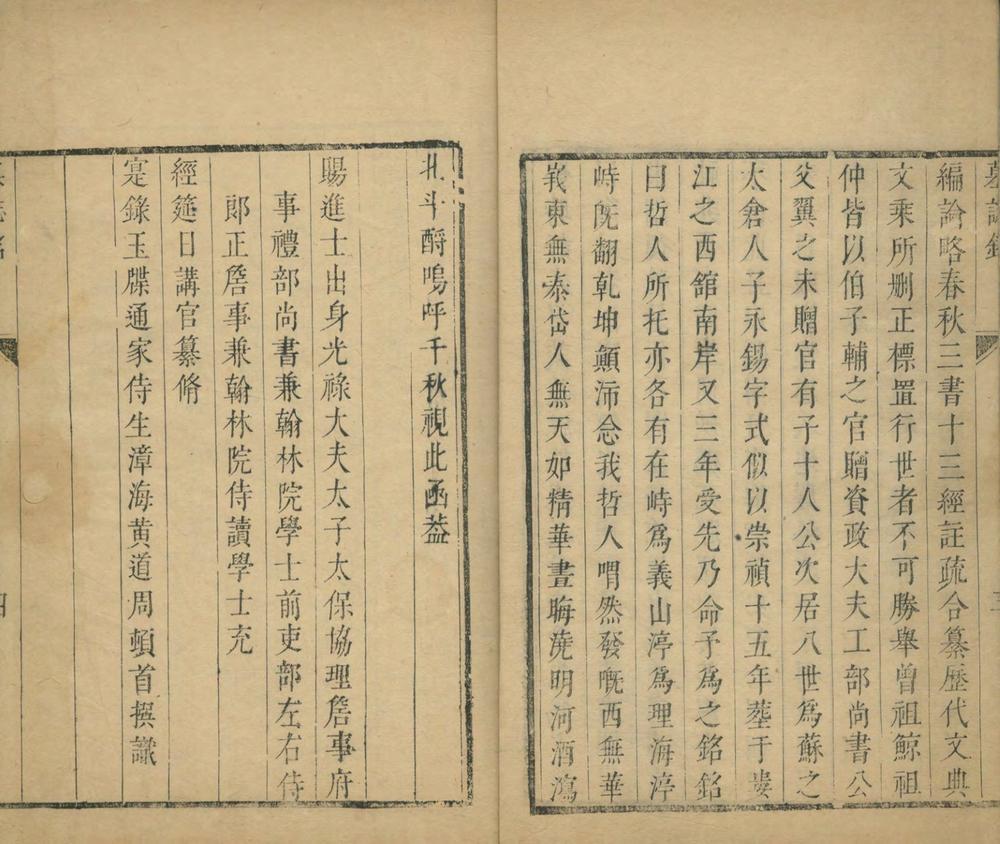 墓誌銘
三
編論略春秋三書十三經註疏合纂歷代文典
文乘所删正標置行世者不可勝舉曾祖鯨祖
仲皆以伯子輔之官贈資政大夫工部尚書公
父翼之未贈官有子十人公次居八世爲蘇之
太倉人子永錫字式似以崇禎十五年塟于婁
江之西舘南岸又三年受先乃命予爲之銘銘
曰哲人所托亦各有在峙爲義山渟爲理海渟
峙旣翻乹坤顚沛念我哲人喟然發嘅西無華
峩東無泰岱人無天如精華晝晦澆明河酒瀉
北斗酹嗚呼千秋視此函葢
賜進士出身光祿大夫太子太保協理詹事府
事禮部尚書兼翰林院學士前吏部左右侍
郎正詹事兼翰林院侍讀學士充
經筵日講官纂脩
寔錄玉牒通家侍生漳海黄道周頓首撰識